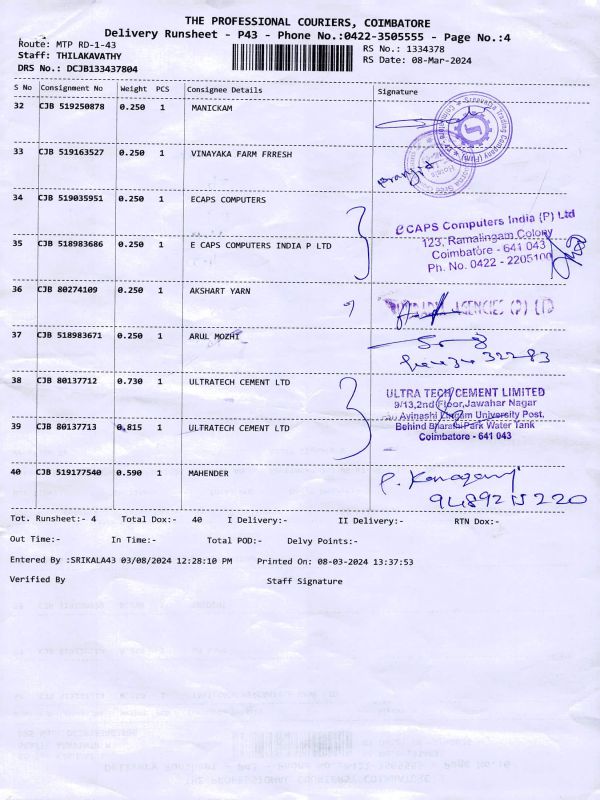 THE PROFESSIONAL COURIERS, COIMBATORE
Delivery Runsheet - P43 - Phone No.:0422-3505555 - Page No.:4
Route: MTP RD-1-43
RS No.: 1334378
Staff: THILAKAVATHY
RS Date: 08-Mar-2024
DRS No.: DCJB133437804
S No Consignment No Weight PCS Consignee Details Signature
32 CJB 519250878 0.250 1 MANICKAM
33 CJB 519163527 0.250 1 VINAYAKA FARM FRRESH
34 CJB 519035951 0.250 1 ECAPS COMPUTERS
eCAPS Computers India (P) Ltd
123, Ramalingam Colony
35 CJB 518983686 0.250 1 E CAPS COMPUTERS INDIA P LTD
Coimbatore - 641 043
Ph. No. 0422 - 2205100
36 CJB 80274109 0.250 1 AKSHART YARN
AGENCIES (P) LTD
37 CJB 518983671 0.250 1 ARUL MOZHI
38 CJB 80137712 0.730 1 ULTRATECH CEMENT LTD
ULTRA TECH CEMENT LIMITED
9/13,2nd Floor,Jawahar Nagar
Avinashi Lingam University Post,
39 CJB 80137713 0.815 1 ULTRATECH CEMENT LTD
Behind Bharathi Park Water Tank
Coimbatore - 641 043
40 CJB 519177540 0.590 1 MAHENDER
9489215220
Tot. Runsheet:- 4 Total Dox:- 40 I Delivery:- II Delivery:- RTN Dox:-
Out Time:- In Time:- Total POD:- Delvy Points:-
Entered By :SRIKALA43 03/08/2024 12:28:10 PM Printed On: 08-03-2024 13:37:53
Verified By Staff Signature